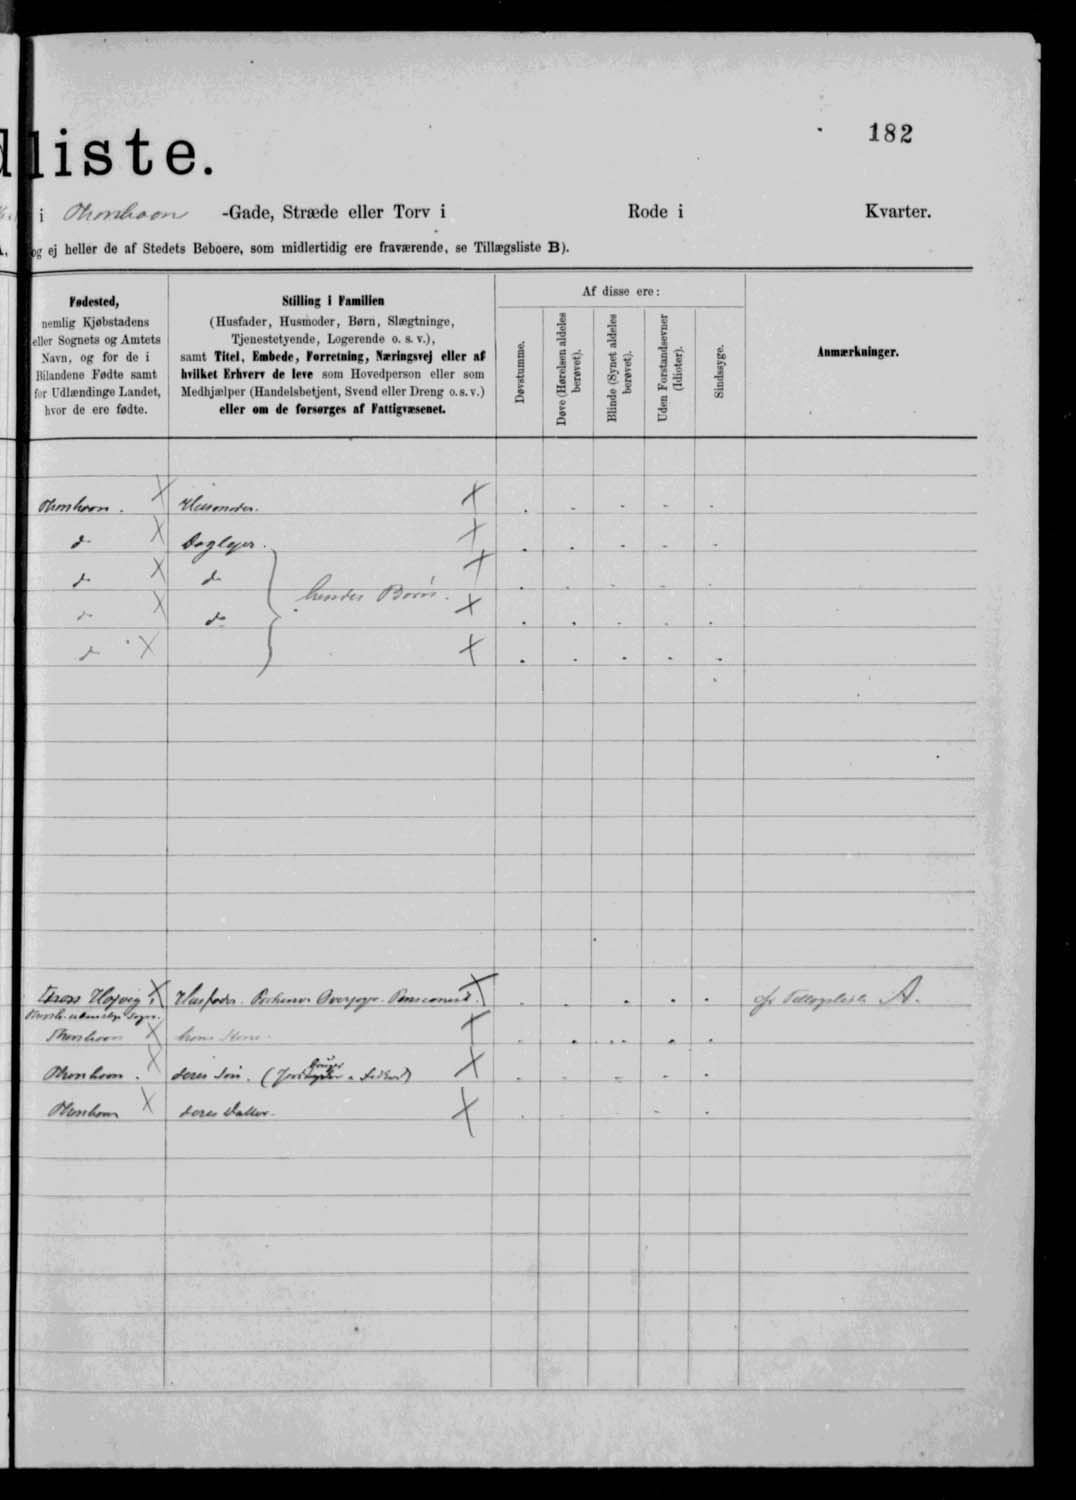 182
dliste.
i Thorshavn -Gade, Stræde eller Torv i Rode i Kvarter.
og ej heller de af Stedets Beboere, som midlertidig ere fraværende, se Tillægsliste B).
Fødested,
nemlig Kjøbstadens
eller Sognets og Amtets
Navn, og for de i
Bilandene Fødte samt
for Udlændinge Landet,
hvor de ere fødte.
Stilling i Familien
(Husfader, Husmoder, Børn, Slægtninge,
Tjenestetyende, Logerende o. s. v.),
samt Titel, Embede, Forretning, Næringsvej eller af
hvilket Erhverv de leve som Hovedperson eller som
Medhjælper (Handelsbetjent, Svend eller Dreng o.s.v.)
eller om de forsørges af Fattigvæsenet.
Af disse ere:
Døvstumme.
Døve (Hørelsen aldeles
berøvet).
Blinde (Synet aldeles
berøvet).
Uden Forstandsevner
(Idioter).
Sindssyge.
Anmærkninger.
Thorshavn. Husmoder.
do Daglejer.
do do hendes Børn.
do do
do
Højvig Husfader. Pensionist. Tillægsliste A.
Thorshavn hans Kone.
Thorshavn. deres Søn.
Thorshavn deres Datter.